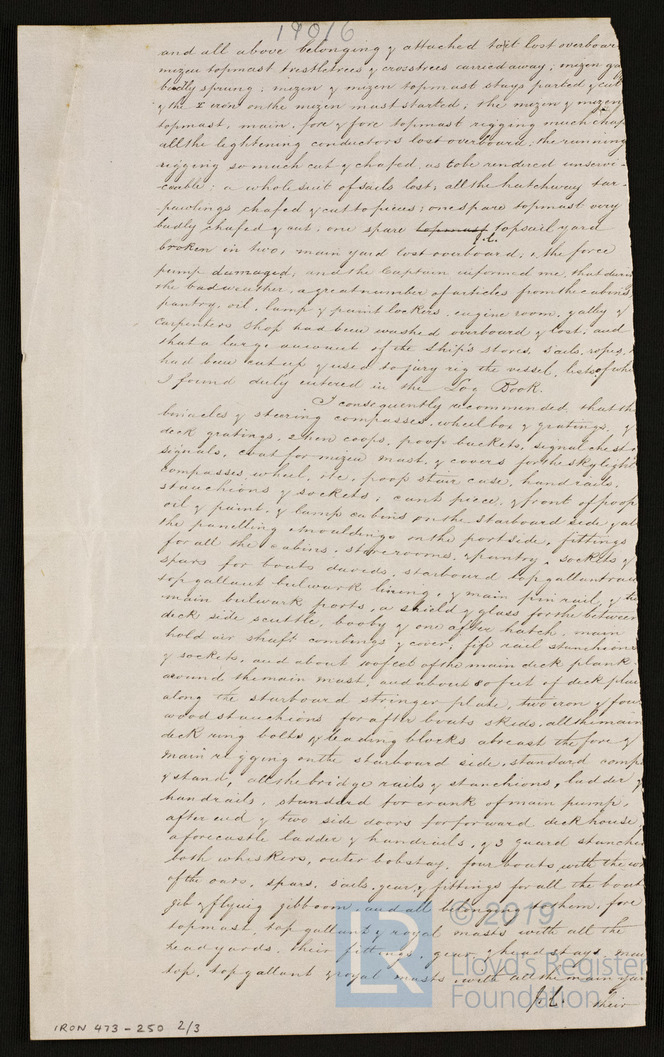 19016
and all above belonging & attached to it lost overboar
mizen topmast trestletrees & crosstrees carried away; mizen ga
badly sprung; mizen & mizen topmast stays parted & cut
& the iron on the mizen mast started; the mizen & mizen
topmast, main, fore & fore topmast rigging much chaf
all the lightening conductors lost overboard, the running
rigging so much cut & chafed, as to be rendered unservi-
ceable; a whole suit of sails lost; all the hatchway tar-
pawlings chafed & cut to pieces; one spare topmast very
badly chafed & cut, one spare topmast topsail yard
broken in two, main yard lost overboard; & the force
J.L.
pump damaged; and the Captain informed me, that durin
the bad weather, a great number of articles from the cabins,
pantry, oil, lamp & paint lockers, engine room, galley &
Carpenters Shop had been washed overboard & lost, and
that a large amount of the Ship's stores, sails, ropes,
had been cut up & used to jury rig the vessel, lists of whi
I found duly entered in the Log Book.
I consequently recommended, that th
binacles & steering compasses, wheel box & gratings, &
deck gratings, 2 hen coops, poop buckets, signal chest &
signals, coat for mizen mast, & covers for the skylight
compasses, wheel, etc, poop stair case, hand rails,
stanchions & sockets, cant piece, & front of poop
oil & paint, & lamp cabins on the starboard side & al
the panelling & mouldings on the port side, fittings
for all the cabins, storerooms, & pantry, sockets &
spars for boats davids, starboard top gallant rail
top gallant bulwark lining, & main pin rail, & two
main bulwark ports, a shield & glass for the between
deck side scuttle, booby & one after hatch, main
hold air shaft combings & cover, fife rail stanchions
& sockets, and about 400 feet of the main deck plank
around the main mast, and about 80 feet of deck plan
along the starboard stringer plate, two iron & four
wood stanchions for after boats skids, all the main
deck ring bolts & leading blocks abreast the fore &
main rigging on the starboard side, standard comp
& stand, all the bridge rails & stanchions, ladder &
handrails, standard for crank of main pump,
after end & two side doors for forward deckhouse,
a forecastle ladder & handrails, & 3 guard stanchi
both whiskers, outer bobstay, four boats, with the wh
of the oars, spars, sails, gear, & fittings for all the boat
jib & flying jibboom, and all belonging to them, fore
topmast, top gallant & royal masts with all the
head yards, their fittings, gear, & head stays, mai
top, top gallant & royal masts, with all the main yar
J.L. their
LR
© 2019
Lloyd's Register
Foundation
IRON 473-250 2/3